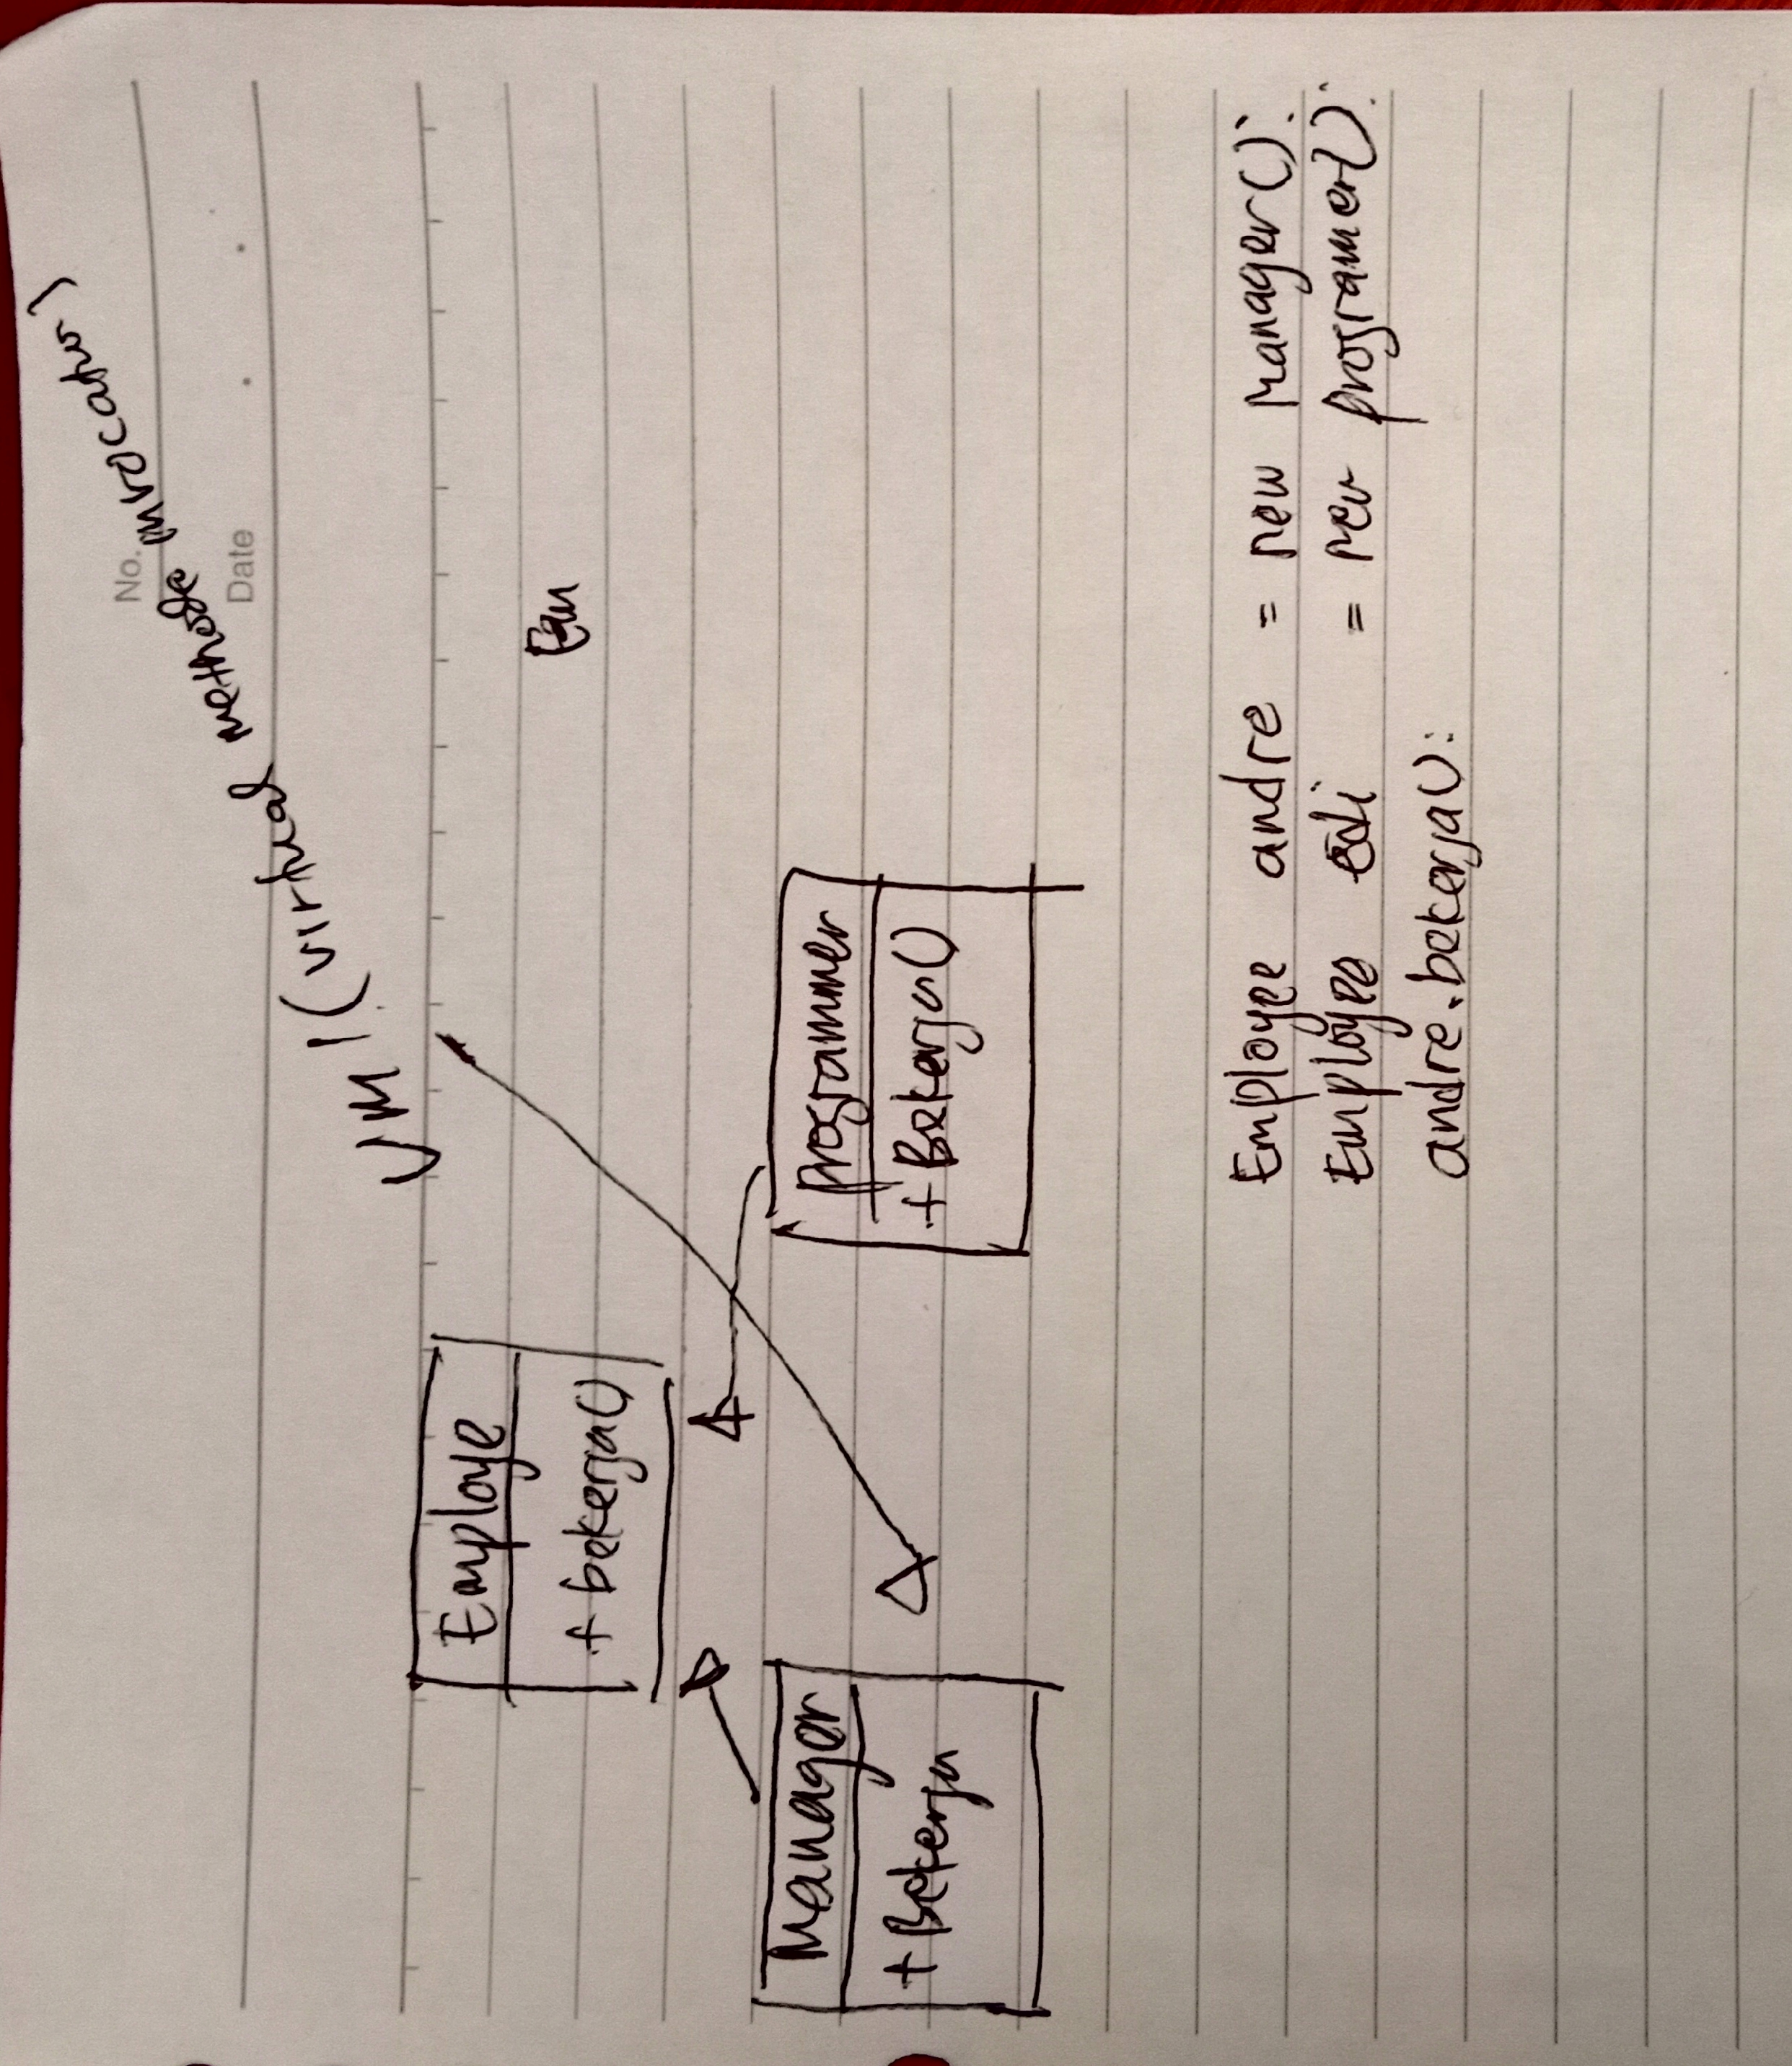 No.
Date
VMI (virtual methode invocation)
Employe
+ bekerja()
Manager
+ Bekerja
Programmer
+ Bekerja()
Employee andre = new Manager();
Employee edi = new programer();
andre.bekerja();